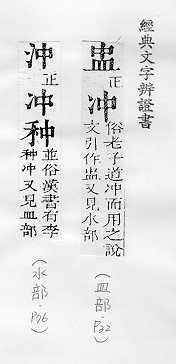 經典文字辨證書
盅正
冲俗老子道冲而用之說
文引作盅又見水部
(皿部·P22)
沖正
冲种並俗漢書有李
种冲又見皿部
(水部·